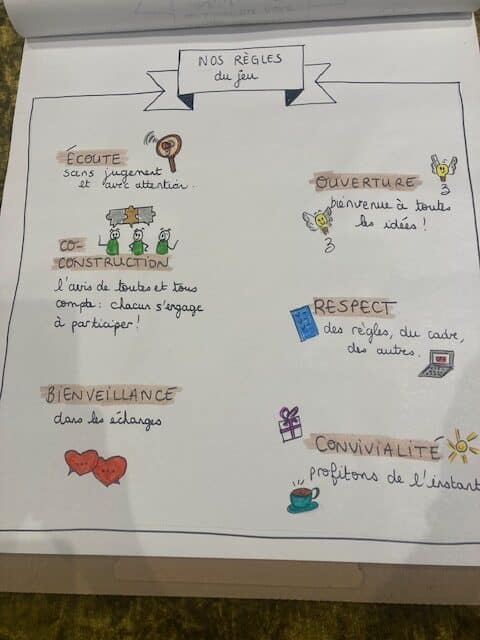 NOS RÈGLES
du jeu
ÉCOUTE
sans jugement
et avec attention.
CO-
CONSTRUCTION
l'avis de toutes et tous
compte : chacun s'engage
à participer !
BIENVEILLANCE
dans les échanges
OUVERTURE
bienvenue à toutes
les idées !
RESPECT
des règles, du cadre,
des autres.
CONVIVIALITÉ
profitons de l'instant